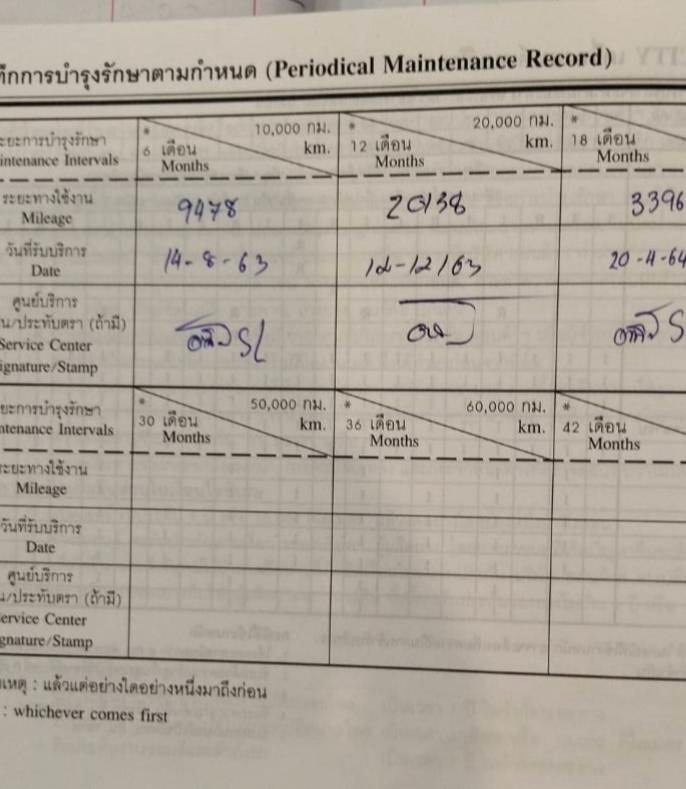 ึกการบำรุงรักษาตามกำหนด (Periodical Maintenance Record)
ระยะการบำรุงรักษา * 10,000 กม. * 20,000 กม. *
6 เดือน km. 12 เดือน km. 18 เดือน
intenance Intervals Months Months Months
ระยะทางใช้งาน
Mileage 9478 20138 3396
วันที่รับบริการ
Date 14-8-63 12-12/63 20-4-64
ศูนย์บริการ
น/ประทับตรา (ถ้ามี)
Service Center
ignature/Stamp
ยะการบำรุงรักษา * 50,000 กม. * 60,000 กม. *
ntenance Intervals 30 เดือน km. 36 เดือน km. 42 เดือน
Months Months Months
ระยะทางใช้งาน
Mileage
วันที่รับบริการ
Date
ศูนย์บริการ
น/ประทับตรา (ถ้ามี)
ervice Center
gnature/Stamp
เหตุ : แล้วแต่อย่างใดอย่างหนึ่งมาถึงก่อน
: whichever comes first